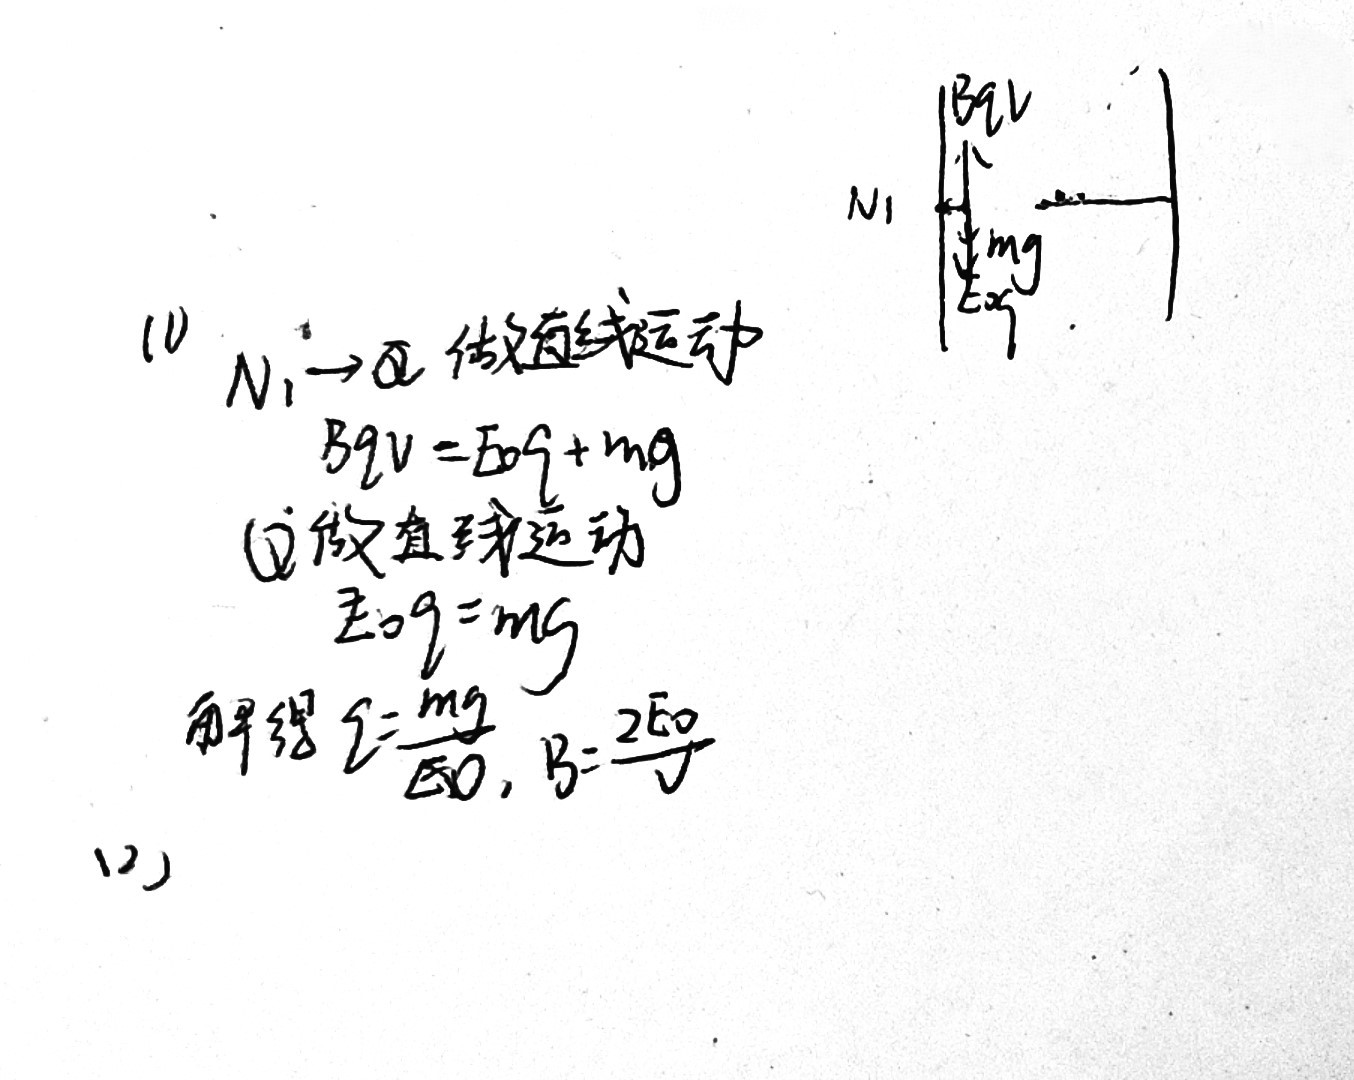 Bqv
N1
mg
E0q
(1)
N1→Q 做直线运动
Bqv=E0q+mg
Q做直线运动
E0q=mg
解得 q=mg/E0, B=2E0/v
(2)